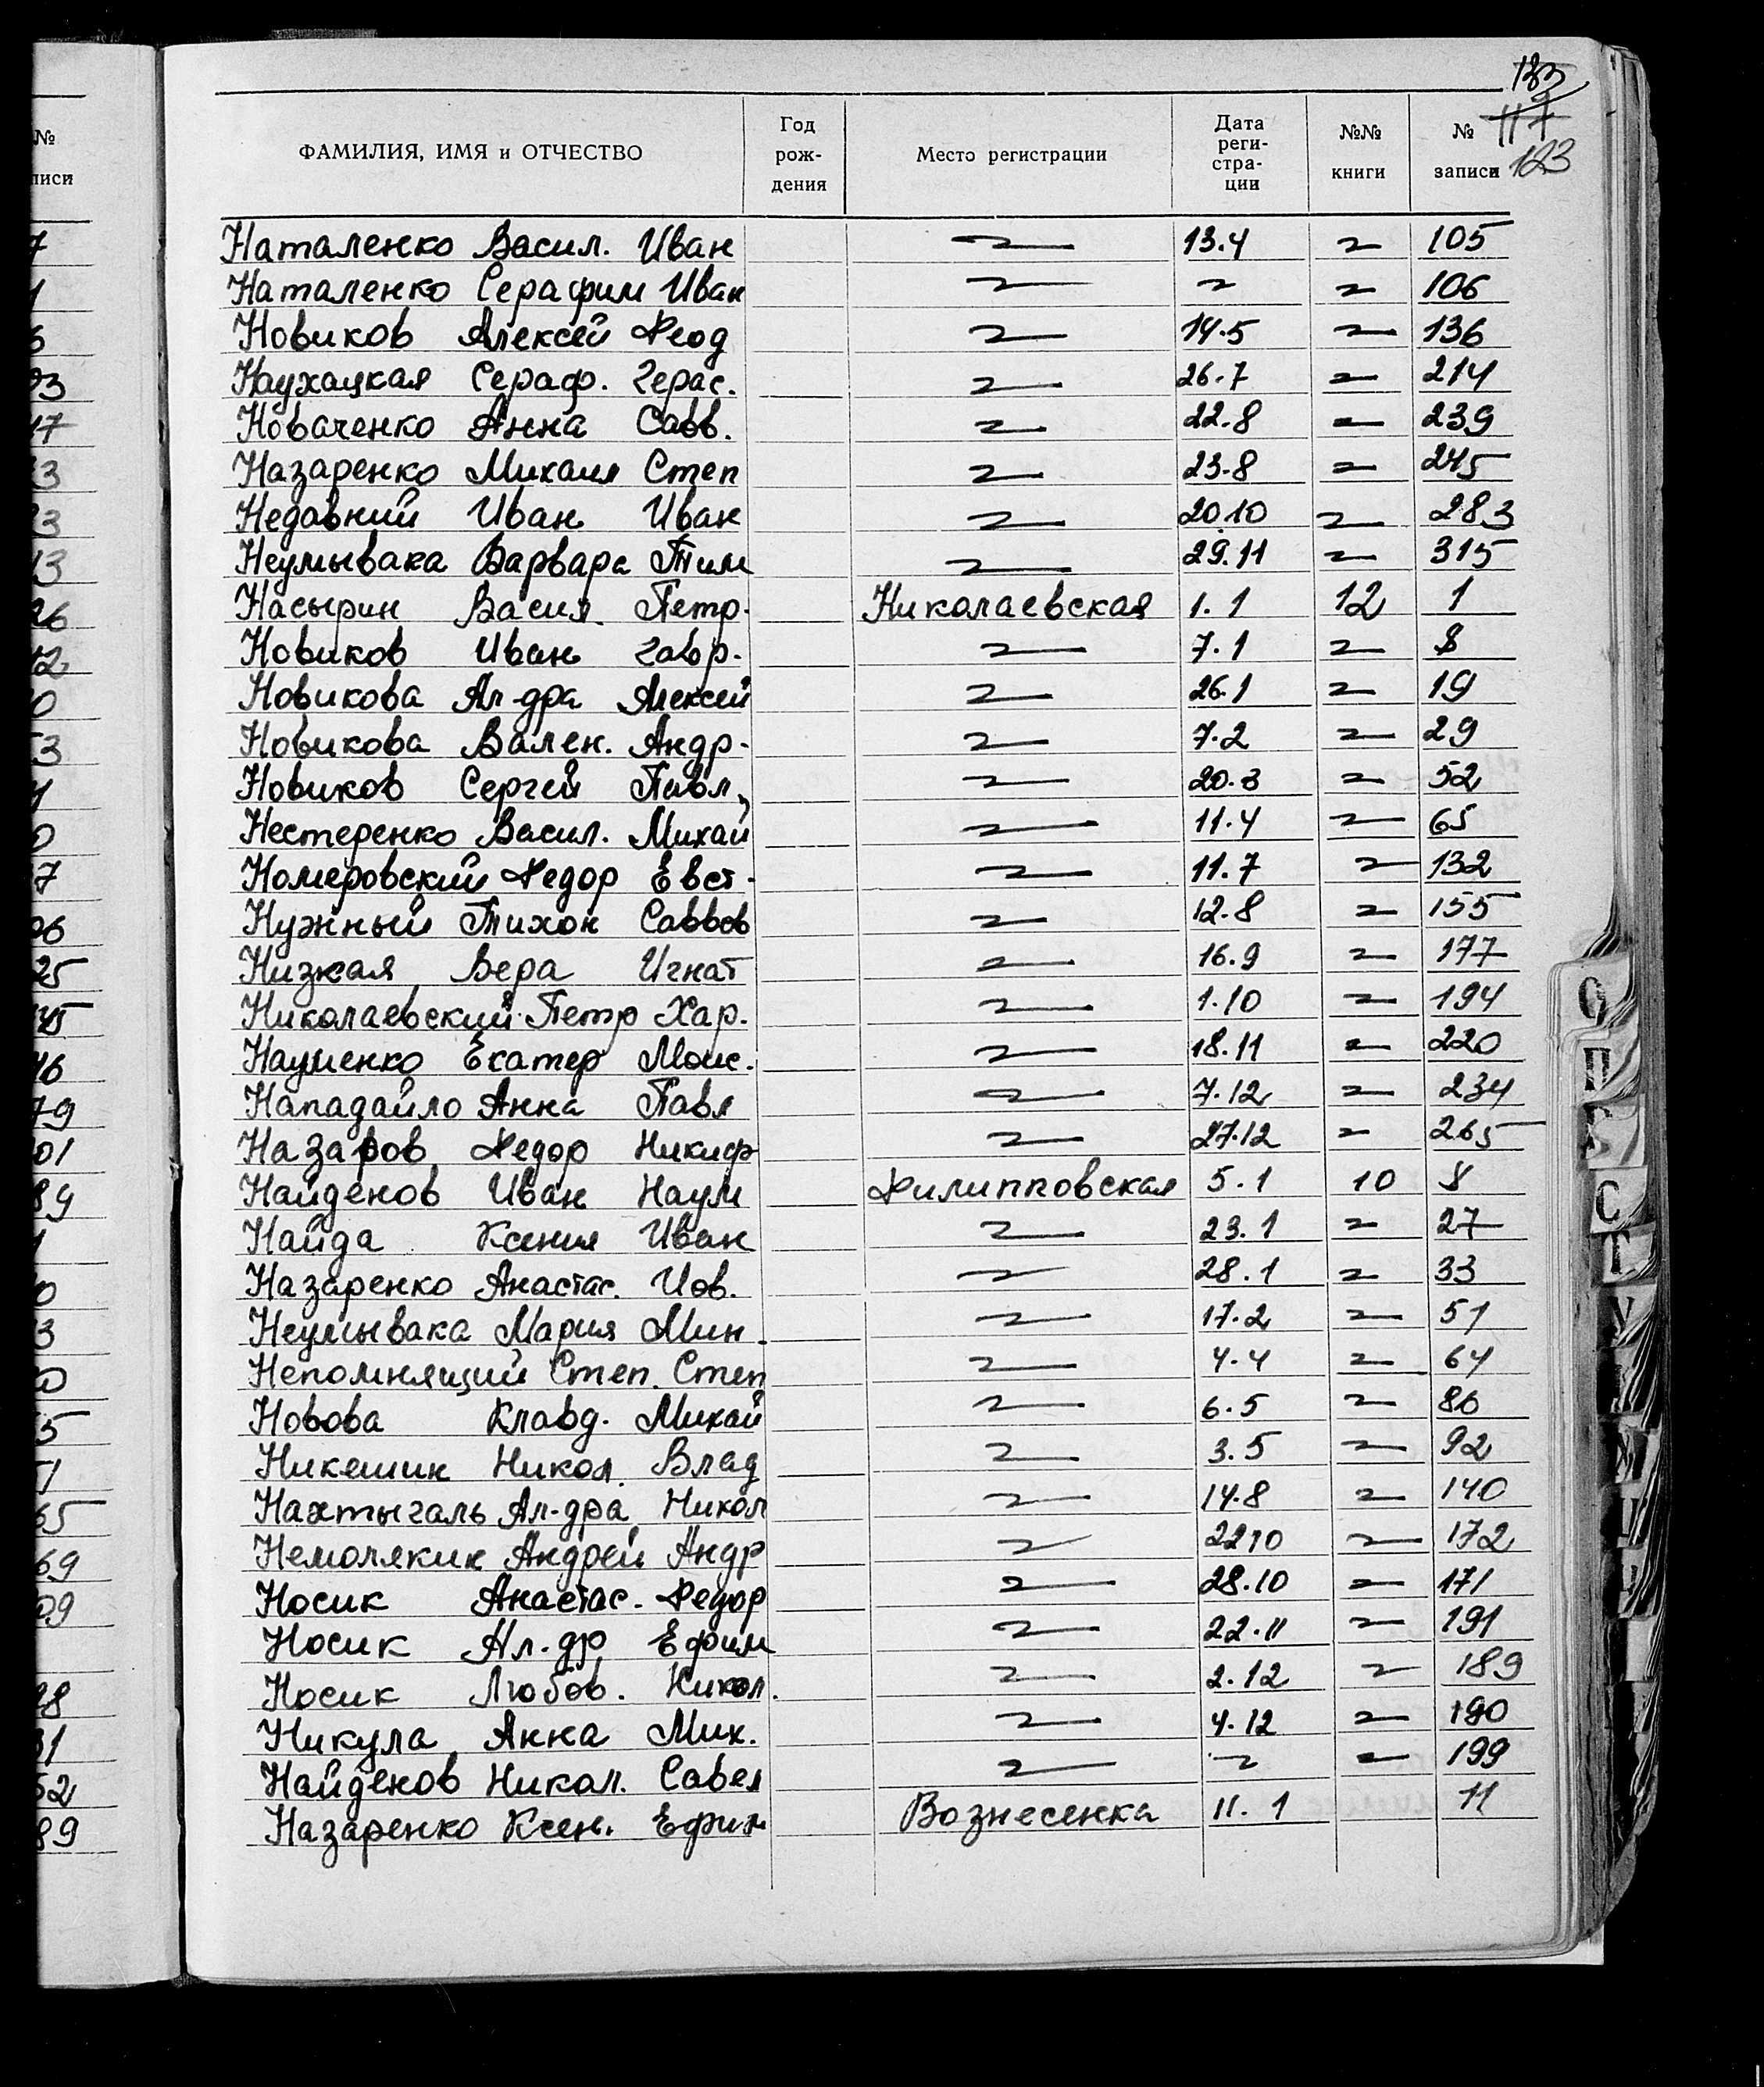 133
117
123
ФАМИЛИЯ, ИМЯ и ОТЧЕСТВО Год рождения Место регистрации Дата регистрации №№ книги № записи
Наталенко Васил. Иван 〃 13.4 〃 105
Наталенко Серафим Иван 〃 〃 〃 106
Новиков Алексей Феод 〃 14.5 〃 136
Наухацкая Сераф. Герас. 〃 26.7 〃 214
Новаченко Анна Савв. 〃 22.8 〃 239
Назаренко Михаил Степ 〃 23.8 〃 245
Недавний Иван Иван 〃 20.10 〃 283
Неумывака Варвара Тим 〃 29.11 〃 315
Насырин Васил. Петр. Николаевская 1.1 12 1
Новиков Иван Гавр. 〃 7.1 〃 8
Новикова Ал-дра Алексей 〃 26.1 〃 19
Новикова Вален. Андр. 〃 7.2 〃 29
Новиков Сергей Павл. 〃 20.3 〃 52
Нестеренко Васил. Михай 〃 11.4 〃 65
Номеровский Федор Евст. 〃 11.7 〃 132
Нужный Тихон Саввов 〃 12.8 〃 155
Низкая Вера Игнат 〃 16.9 〃 177
Николаевский Петр Хар. 〃 1.10 〃 194
Науменко Екатер Моис. 〃 18.11 〃 220
Нападайло Анна Павл 〃 7.12 〃 234
Назаров Федор Никиф 〃 27.12 〃 265
Найденов Иван Наум Филипповская 5.1 10 8
Найда Ксения Иван 〃 23.1 〃 27
Назаренко Анастас. Иов. 〃 28.1 〃 33
Неумывака Мария Мин. 〃 17.2 〃 51
Непомнящий Степ. Степ 〃 4.4 〃 64
Новова Клавд. Михай 〃 6.5 〃 86
Никешин Никол. Влад 〃 3.5 〃 92
Нахтыгаль Ал-дра Никол 〃 14.8 〃 140
Немолякин Андрей Андр 〃 22 10 〃 172
Носик Анастас. Федор 〃 28.10 〃 171
Носик Ал-др Ефим 〃 22.11 〃 191
Носик Любов. Никол. 〃 2.12 〃 189
Никула Анна Мих. 〃 4.12 〃 190
Найденов Никол. Савел 〃 〃 〃 199
Назаренко Ксен. Ефим Вознесенка 11.1 11
О
П
С
Т
У